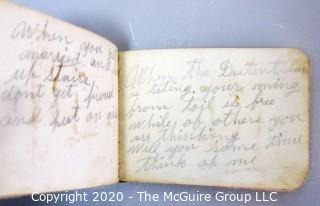 When you
married and
up stairs
dont get
and put on
When the Distent Sun
is seting your
from toil is free
while of others you
are thinking
Will you some time
think of me
COPYRIGHT 2020 - The McGuire Group LLC